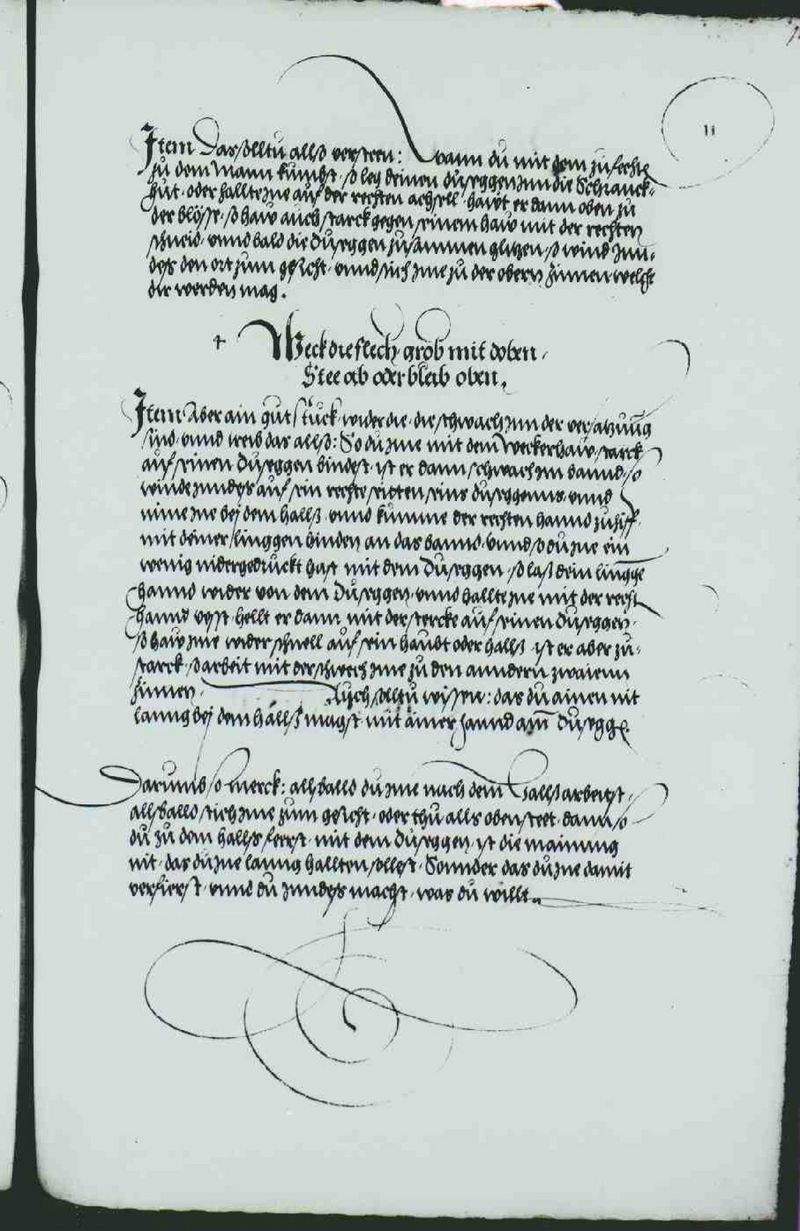 11
Item Das solltu allso versteen: Wann du mit dem zufechten
zu dem Mann kumbst, so leg deinen dusëggen inn die Schranck-
hut, oder hallt ine auf der rechten achsell, hawt er dann oben zu
der blösse, so haw auch starck gegen seinem haw mit der rechten
schneid, vnnd bald die dusëggen zusammen glitzen, so wind Inn-
des den ort zum gesicht, vnnd stich Ime zu der obern zinnen welche
dir werden mag.
Weck die flech, grob mit doben,
Stee ab oder bleib oben.
Item Aber ain gut stuck, wider die, die schwach inn der versatzung
sind, vnnd treib das allso: So du ime mit dem Weckerhaw, starck
auf seinen dusëggen bindest, ist er dann schwach im bannd, so
winde inndes auf sein rechte seitten seins dusëggenns, vnnd
nim ine bei dem halls, vnnd kumme der rechten hannd zu hilff
mit deiner linggen hinden an das bannd, vnnd so du ine ein
wenig nidergedruckt hast mit dem dusëggen, so lass dein lingge
hannd wider von dem dusëggen, vnnd hallt ine mit der recht
hannd vest, hellt er dann mit der stercke auf seinen dusëggen,
so haw ime wider schnell auf sein haubt oder halls, ist er aber zu-
starck, so arbeit mit der schwech ime zu den anndern zwaienn
zinnen. Auch solltu wissen: das du ainen nit
lanng bei dem halls magst mit ainer hannd am dusëgg
Darumb so merck: alls balld du ime nach dem Halls arbeitest,
alls balld stich ime zum gesicht, oder thu alls oben steet, dann so
du zu dem halls ferst, mit dem dusëggen, ist die mainung
nit, das du ine lanng hallten sollest, Sonnder das du ine damit
verfierst, vnnd du inndes machst, was du willt.